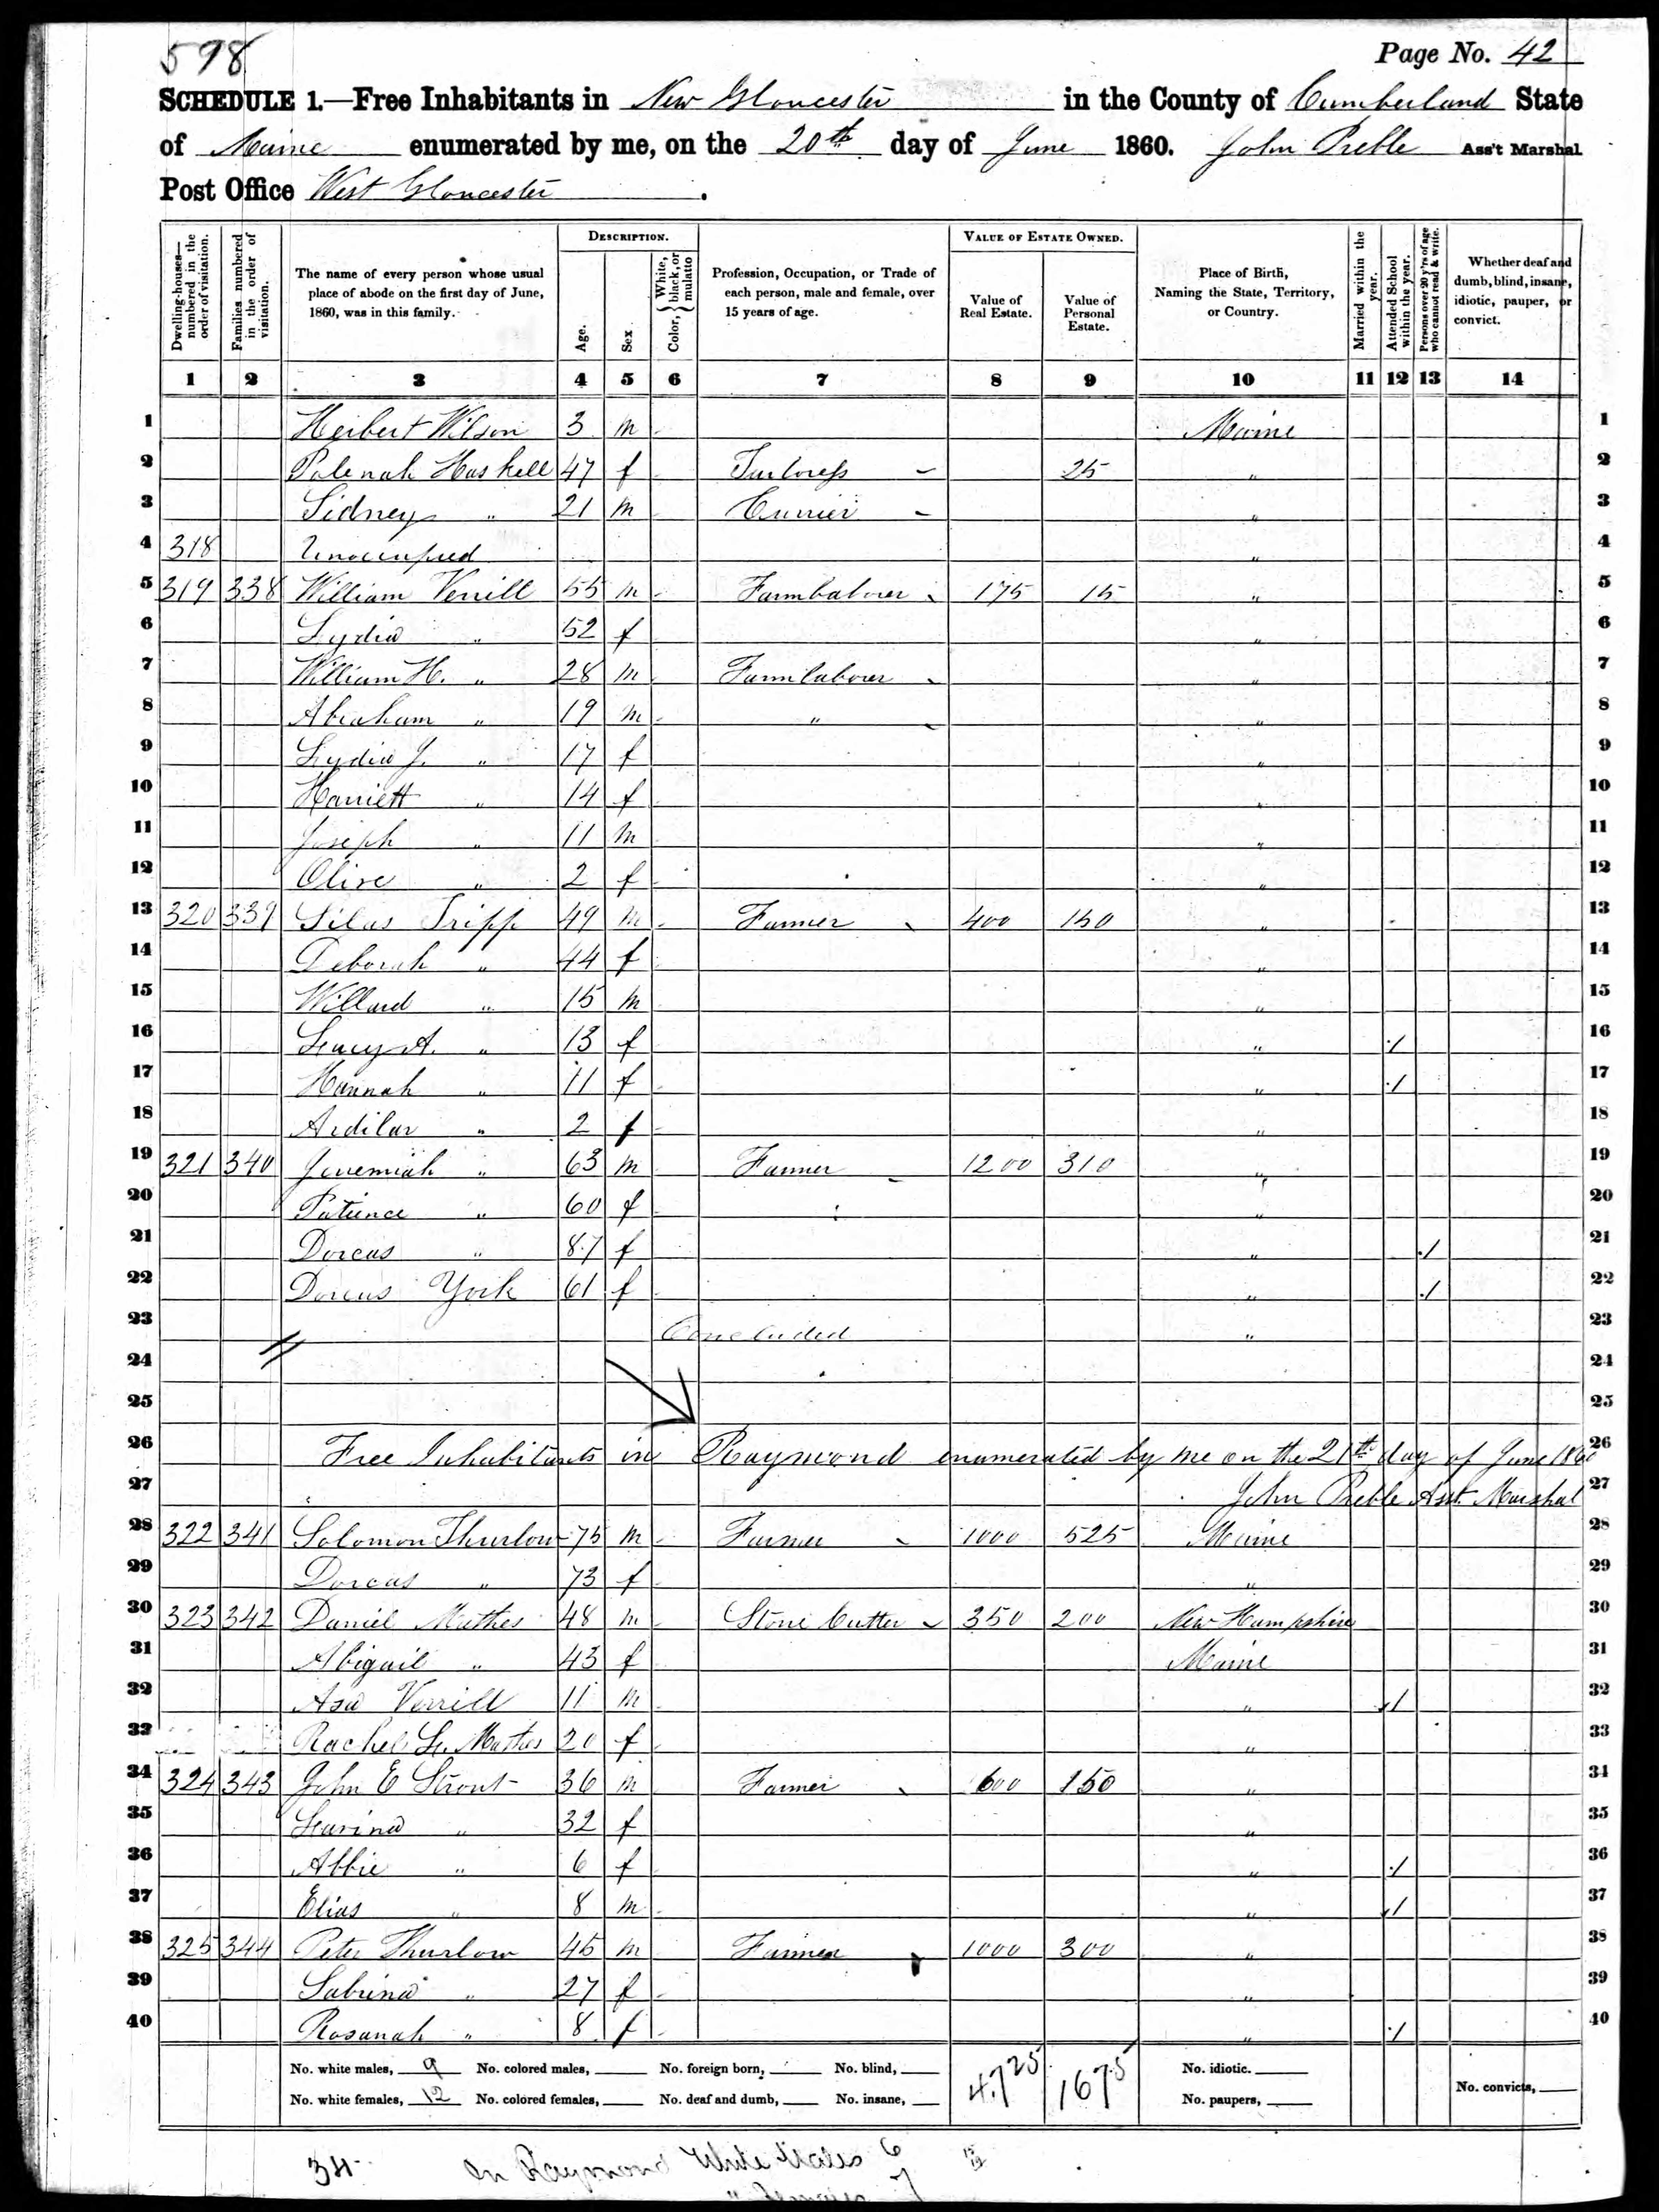 598
Page No. 42
SCHEDULE 1.—Free Inhabitants in New Gloucester in the County of Cumberland State
of Maine enumerated by me, on the 20th day of June 1860. John Preble Ass't Marshal
Post Office West Gloucester.
Dwelling-houses—numbered in the order of visitation.
Families numbered in the order of visitation.
The name of every person whose usual place of abode on the first day of June, 1860, was in this family.
DESCRIPTION.
Age.
Sex
Color, { White, black, or mulatto
Profession, Occupation, or Trade of each person, male and female, over 15 years of age.
VALUE OF ESTATE OWNED.
Value of Real Estate.
Value of Personal Estate.
Place of Birth, Naming the State, Territory, or Country.
Married within the year.
Attended School within the year.
Persons over 20 y'rs of age who cannot read & write.
Whether deaf and dumb, blind, insane, idiotic, pauper, or convict.
1 2 3 4 5 6 7 8 9 10 11 12 13 14
1 Herbert Wilson 3 m Maine 1
2 Haskell 47 f Tailoress 25 " 2
3 Sidney " 21 m Currier " 3
4 318 Unoccupied " 4
5 319 338 William Verrill 55 m Farm Laborer 175 15 " 5
6 Lydia " 52 f " 6
7 William H. " 28 m Farm laborer " 7
8 Abraham " 19 m " " 8
9 Lydia J. " 17 f " 9
10 Harriett " 14 f " 10
11 Joseph " 11 m " 11
12 Olive " 2 f " 12
13 320 339 Silas Tripp 49 m Farmer 400 150 " 13
14 Deborah " 44 f " 14
15 Willard " 15 m " 15
16 Lucy A. " 13 f " / 16
17 Hannah " 11 f " / 17
18 Ardilar " 2 f " 18
19 321 340 Jeremiah " 63 m Farmer 1200 310 " 19
20 Patience " 60 f " 20
21 Dorcas " 87 f " / 21
22 Dorcas York 61 f " / 22
23 Concluded " 23
24 24
25 25
26 Free Inhabitants in Raymond enumerated by me on the 21th day of June 1860 26
27 John Preble Asst. Marshal 27
28 322 341 Solomon Thurlow 75 m Farmer 1000 525 Maine 28
29 Dorcas " 73 f " 29
30 323 342 Daniel Mathes 48 m Stone Cutter 350 200 New Hampshire 30
31 Abigail " 43 f Maine 31
32 Asa Verrill 11 m " / 32
33 Rachel Mathes 20 f " 33
34 324 343 John E Strout 36 m Farmer 600 150 " 34
35 Lavina " 32 f " 35
36 Abbie " 6 f " / 36
37 Elias " 8 m " / 37
38 325 344 Peter Thurlow 45 m Farmer 1000 300 " 38
39 Sabrina " 27 f " 39
40 Rosanah " 8 f " / 40
No. white males, 9 No. colored males, No. foreign born, No. blind, 4725 1675 No. idiotic.
No. white females, 12 No. colored females, No. deaf and dumb, No. insane, No. paupers, No. convicts,
34 In Raymond White Males 6
" Females 7